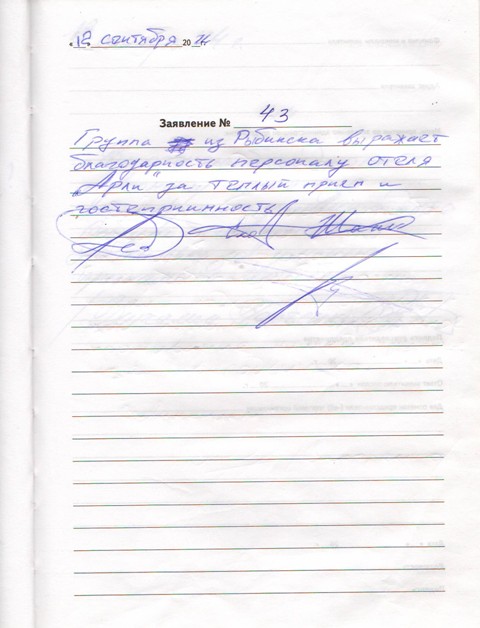 «12» сентября 20 14 г.
Заявление № 43
Группа из Рыбинска выражает
благодарность персоналу отеля
„Арли" за теплый прием и
гостеприимность